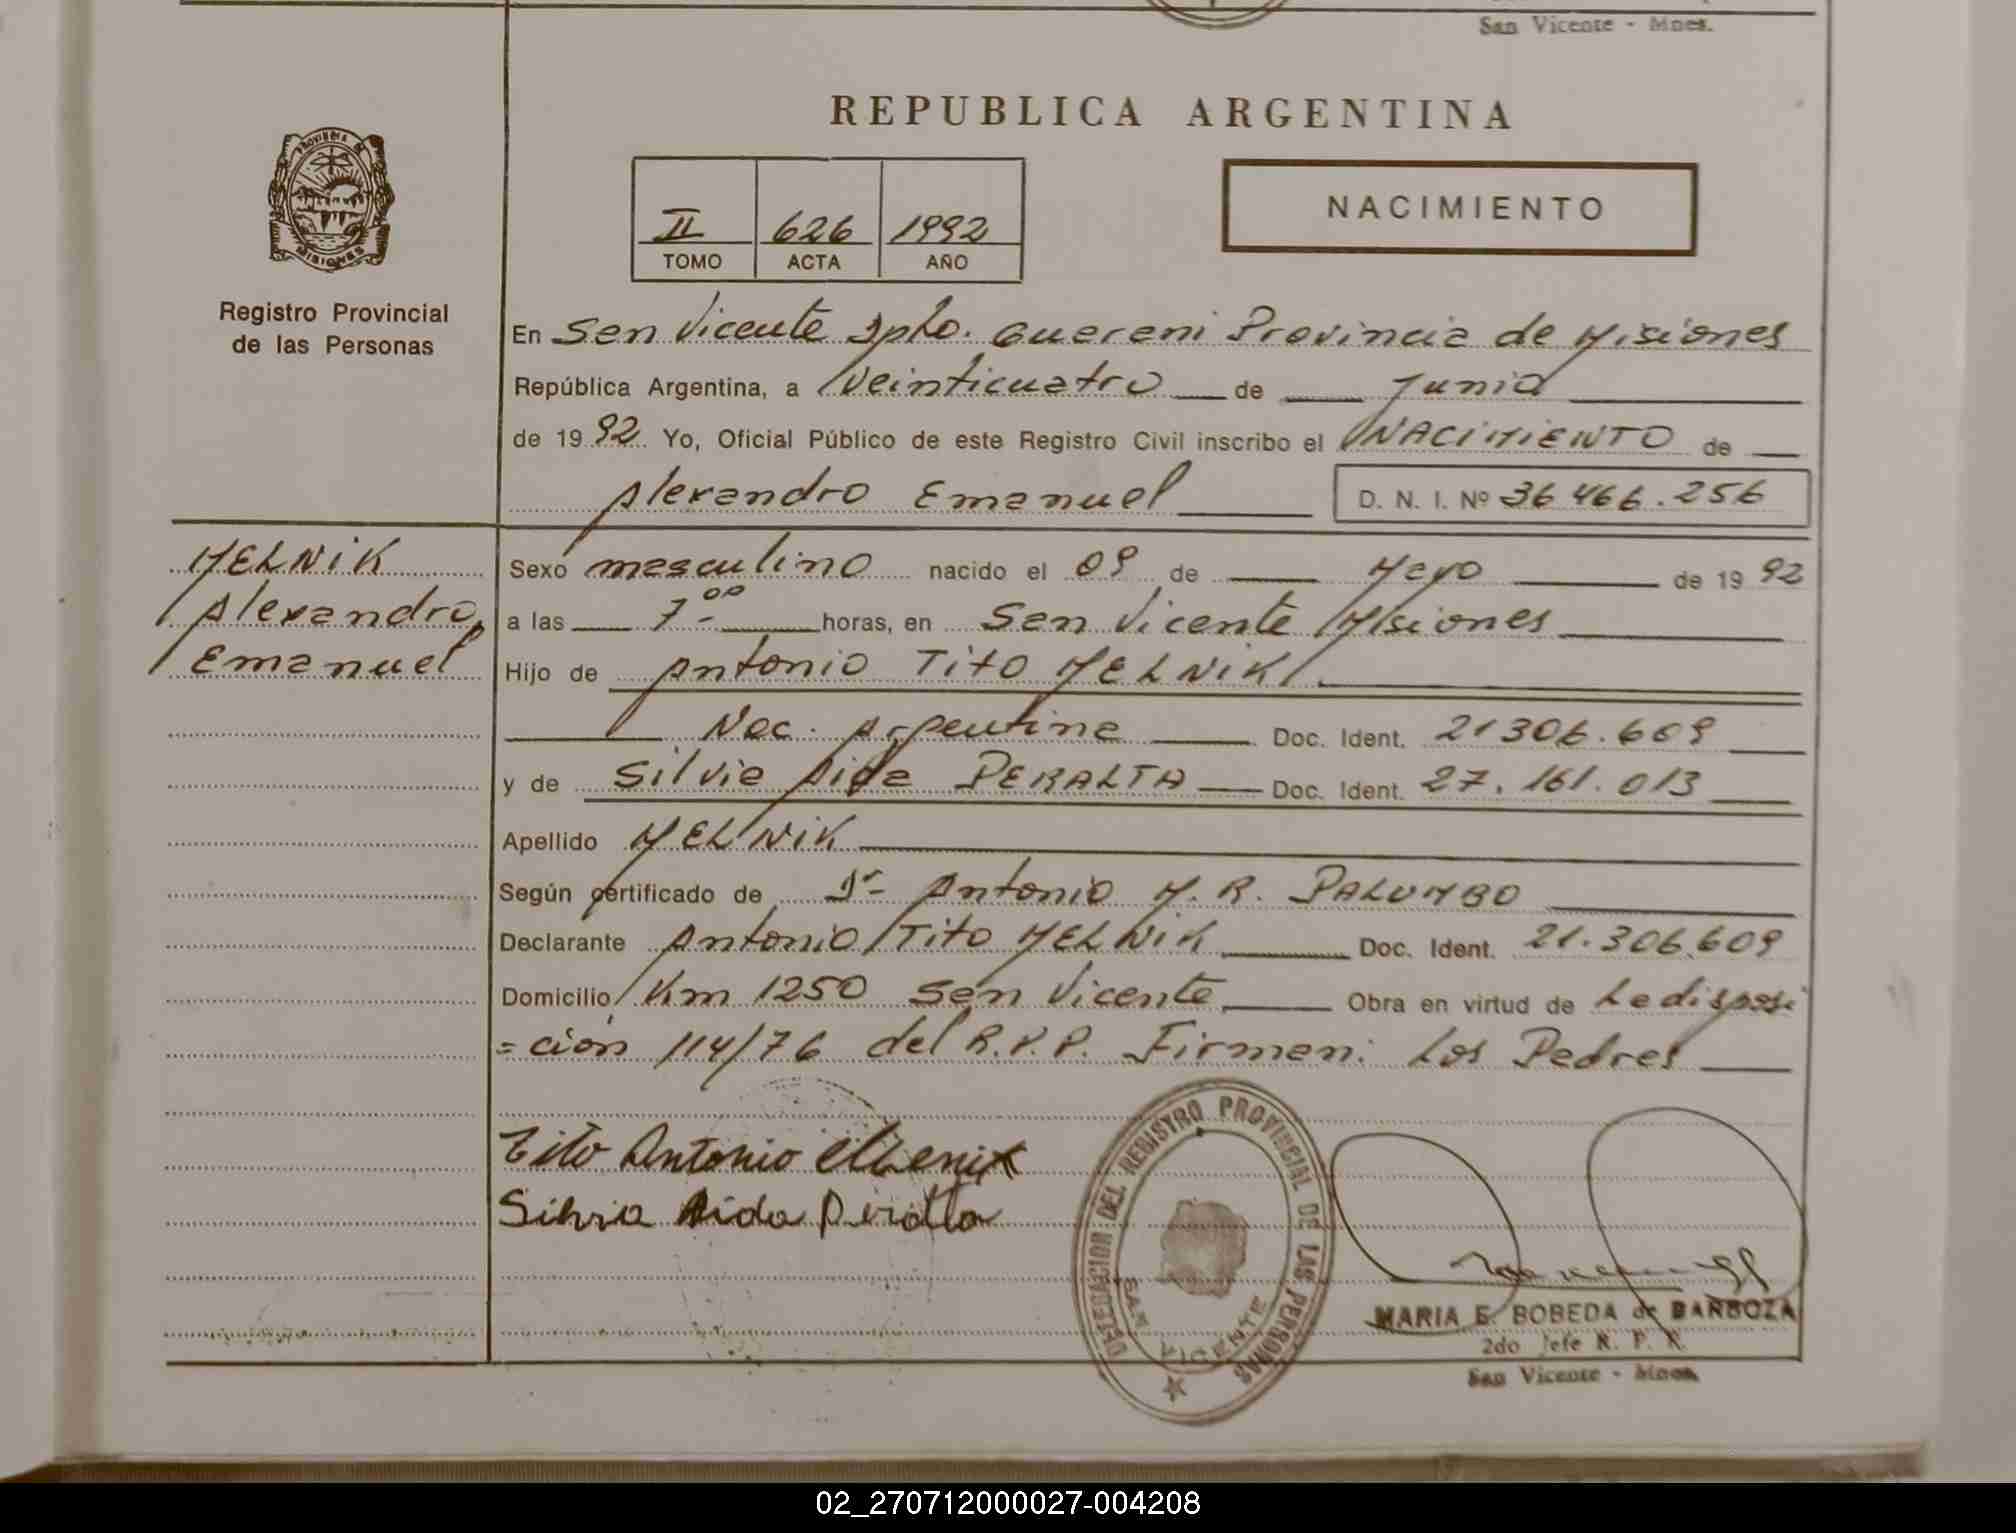 San Vicente - Mnes.
REPUBLICA ARGENTINA
PROVINCIA DE
MISIONES
II 626 1992
TOMO ACTA AÑO
NACIMIENTO
Registro Provincial
de las Personas
En San Vicente Dpto. Guarani Provincia de Misiones
República Argentina, a Veinticuatro de Junio
de 1992 Yo, Oficial Público de este Registro Civil inscribo el NACIMIENTO de
Alexandro Emanuel D. N. I. Nº 36 466.256
MELNIK
Alexandro
Emanuel
Sexo masculino nacido el 09 de Mayo de 1992
a las 7-00 horas, en San Vicente Misiones
Hijo de Antonio Tito MELNIK
Nac. Argentina Doc. Ident. 21306.609
y de Silvia Aida PERALTA Doc. Ident. 27.161.013
Apellido MELNIK
Según certificado de Dr- Antonio M. R. PALUMBO
Declarante Antonio Tito MELNIK Doc. Ident. 21.306.609
Domicilio Km 1250 San Vicente Obra en virtud de La disposi
=ción 114/76 del R.P.P. Firman: Los Padres
Tito Antonio Melenik
Silvia Aida Peralta
DELEGACION DEL REGISTRO PROVINCIAL DE LAS PERSONAS
SAN VICENTE
MARIA E. BOBEDA de BARBOZA
2do Jefe R. P. P.
San Vicente - Mnes.
02_270712000027-004208